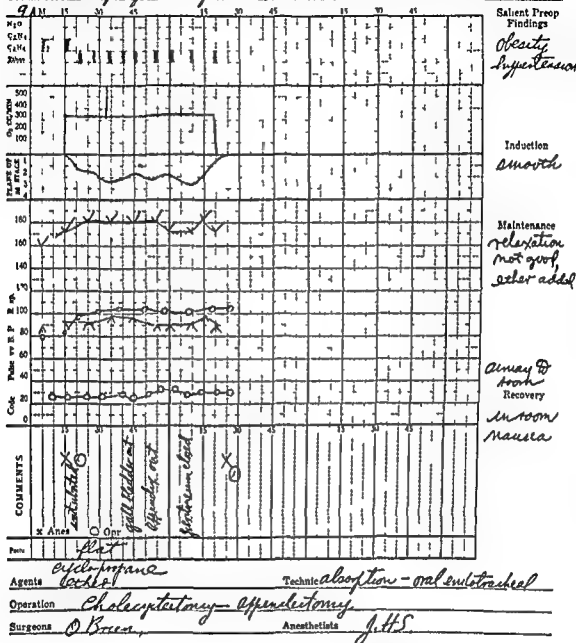 9 A.M. 15 30 45 15 30 45 15 30 45
N₂O
C₂H₄
C₃H₆
Ether
O₂ CC/MIN
500
400
300
200
100
PLANE OF
III STAGE
1
2
3
4
180
160
140
120
100
80
60
40
20
0
Code Pulse vv B. P. Resp.
15 30 45 15 30 45 15 30 45
COMMENTS
intubated
gall bladder out
appendix out
peritoneum closed
x Anes O Opr
Salient Preop
Findings
obesity
hypertension
Induction
smooth
Maintenance
relaxation
not good,
ether added
away
room
Recovery
in room
nausea
Postn flat
cyclopropane
Agents ether Technic absorption - oral endotracheal
Operation Cholecystectomy - appendectomy
Surgeons O'Brien, Anesthetists J.H.S.